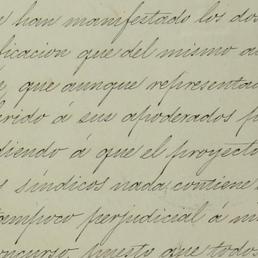 han manifestado los dos
ficacion que del mismo
que aunque representa
rido á sus apoderados p
diendo á que el proyecto
síndicos nada contiene
tampoco perjudicial á
oncurso, puesto que todos